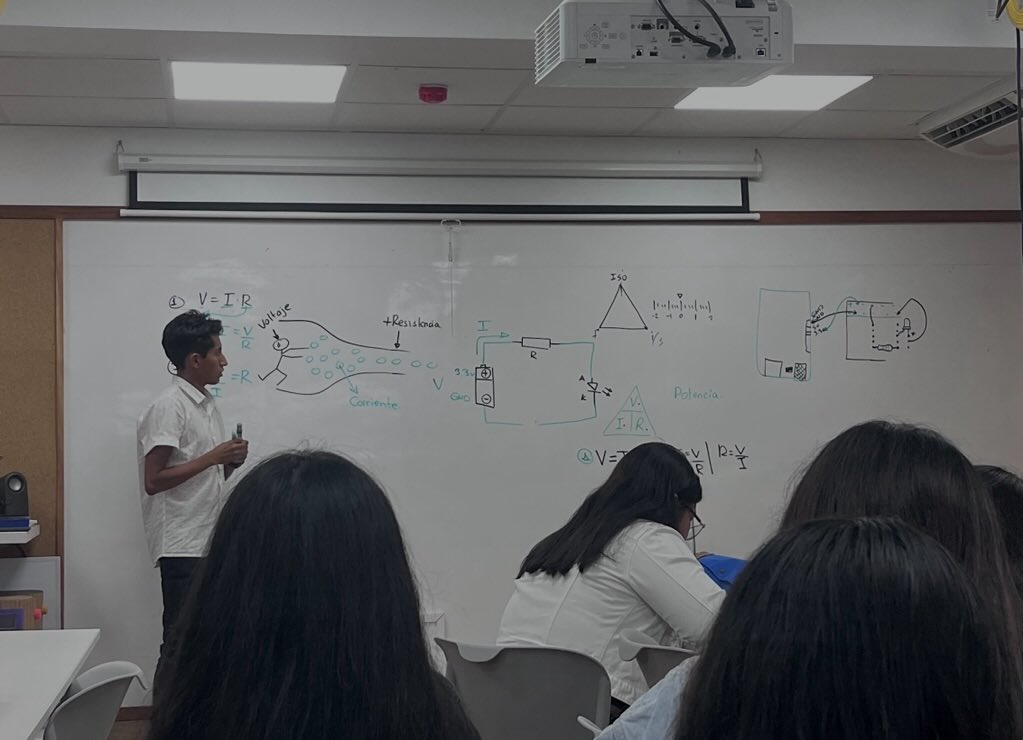 ① V = I · R
= V/R
= R
I
Voltaje
+Resistencia
Corriente
I
R
V
3.3v
GND
A
K
ISO
-2 -1 0 1 2
V.
I. R.
Potencia.
V =
= V/R | R = V/I